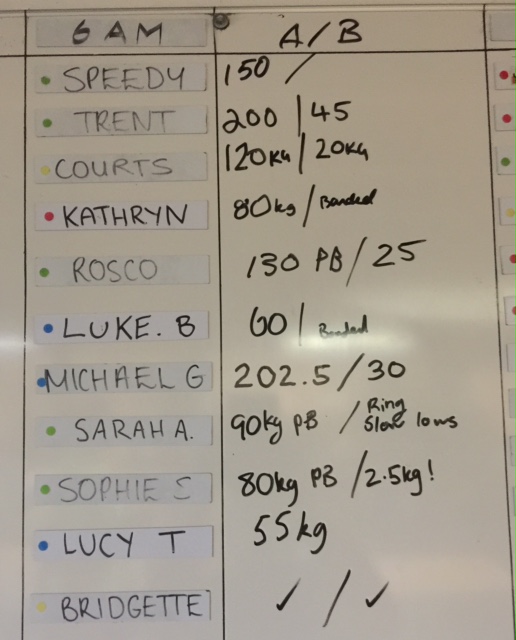 6 AM A/B
SPEEDY 150 /
TRENT 200 / 45
COURTS 120KG / 20KG
KATHRYN 80kg / Banded
ROSCO 130 PB / 25
LUKE. B 60 / Banded
MICHAEL G 202.5 / 30
SARAH A. 90kg PB / Ring
Slow lows
SOPHIE S 80kg PB / 2.5kg!
LUCY T 55kg
BRIDGETTE ✓ / ✓